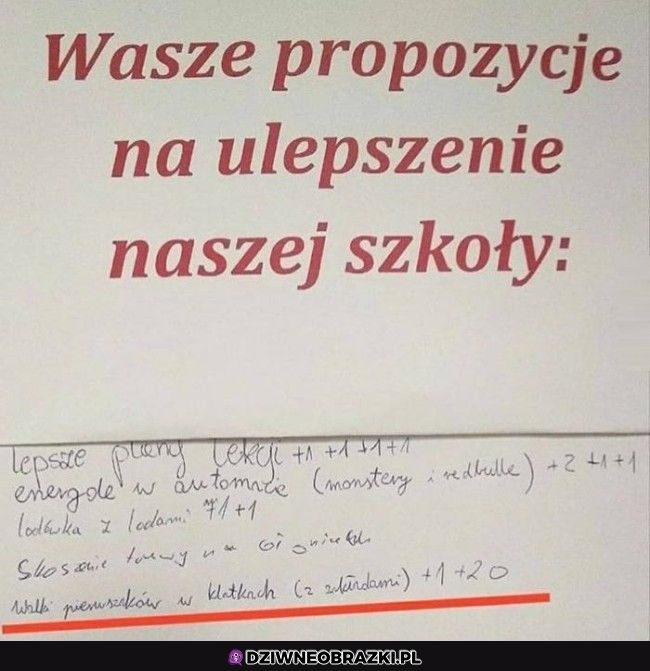 Wasze propozycje
na ulepszenie
naszej szkoły:
lepsze plany lekcji +1 +1 +1+1
energole w automacie (monstery i redbulle) +2 +1+1
lodówka z lodami +1+1
Skoszenie trawy na
Walki pierwszaków w klatkach (z zakładami) +1 +20
DZIWNEOBRAZKI.PL